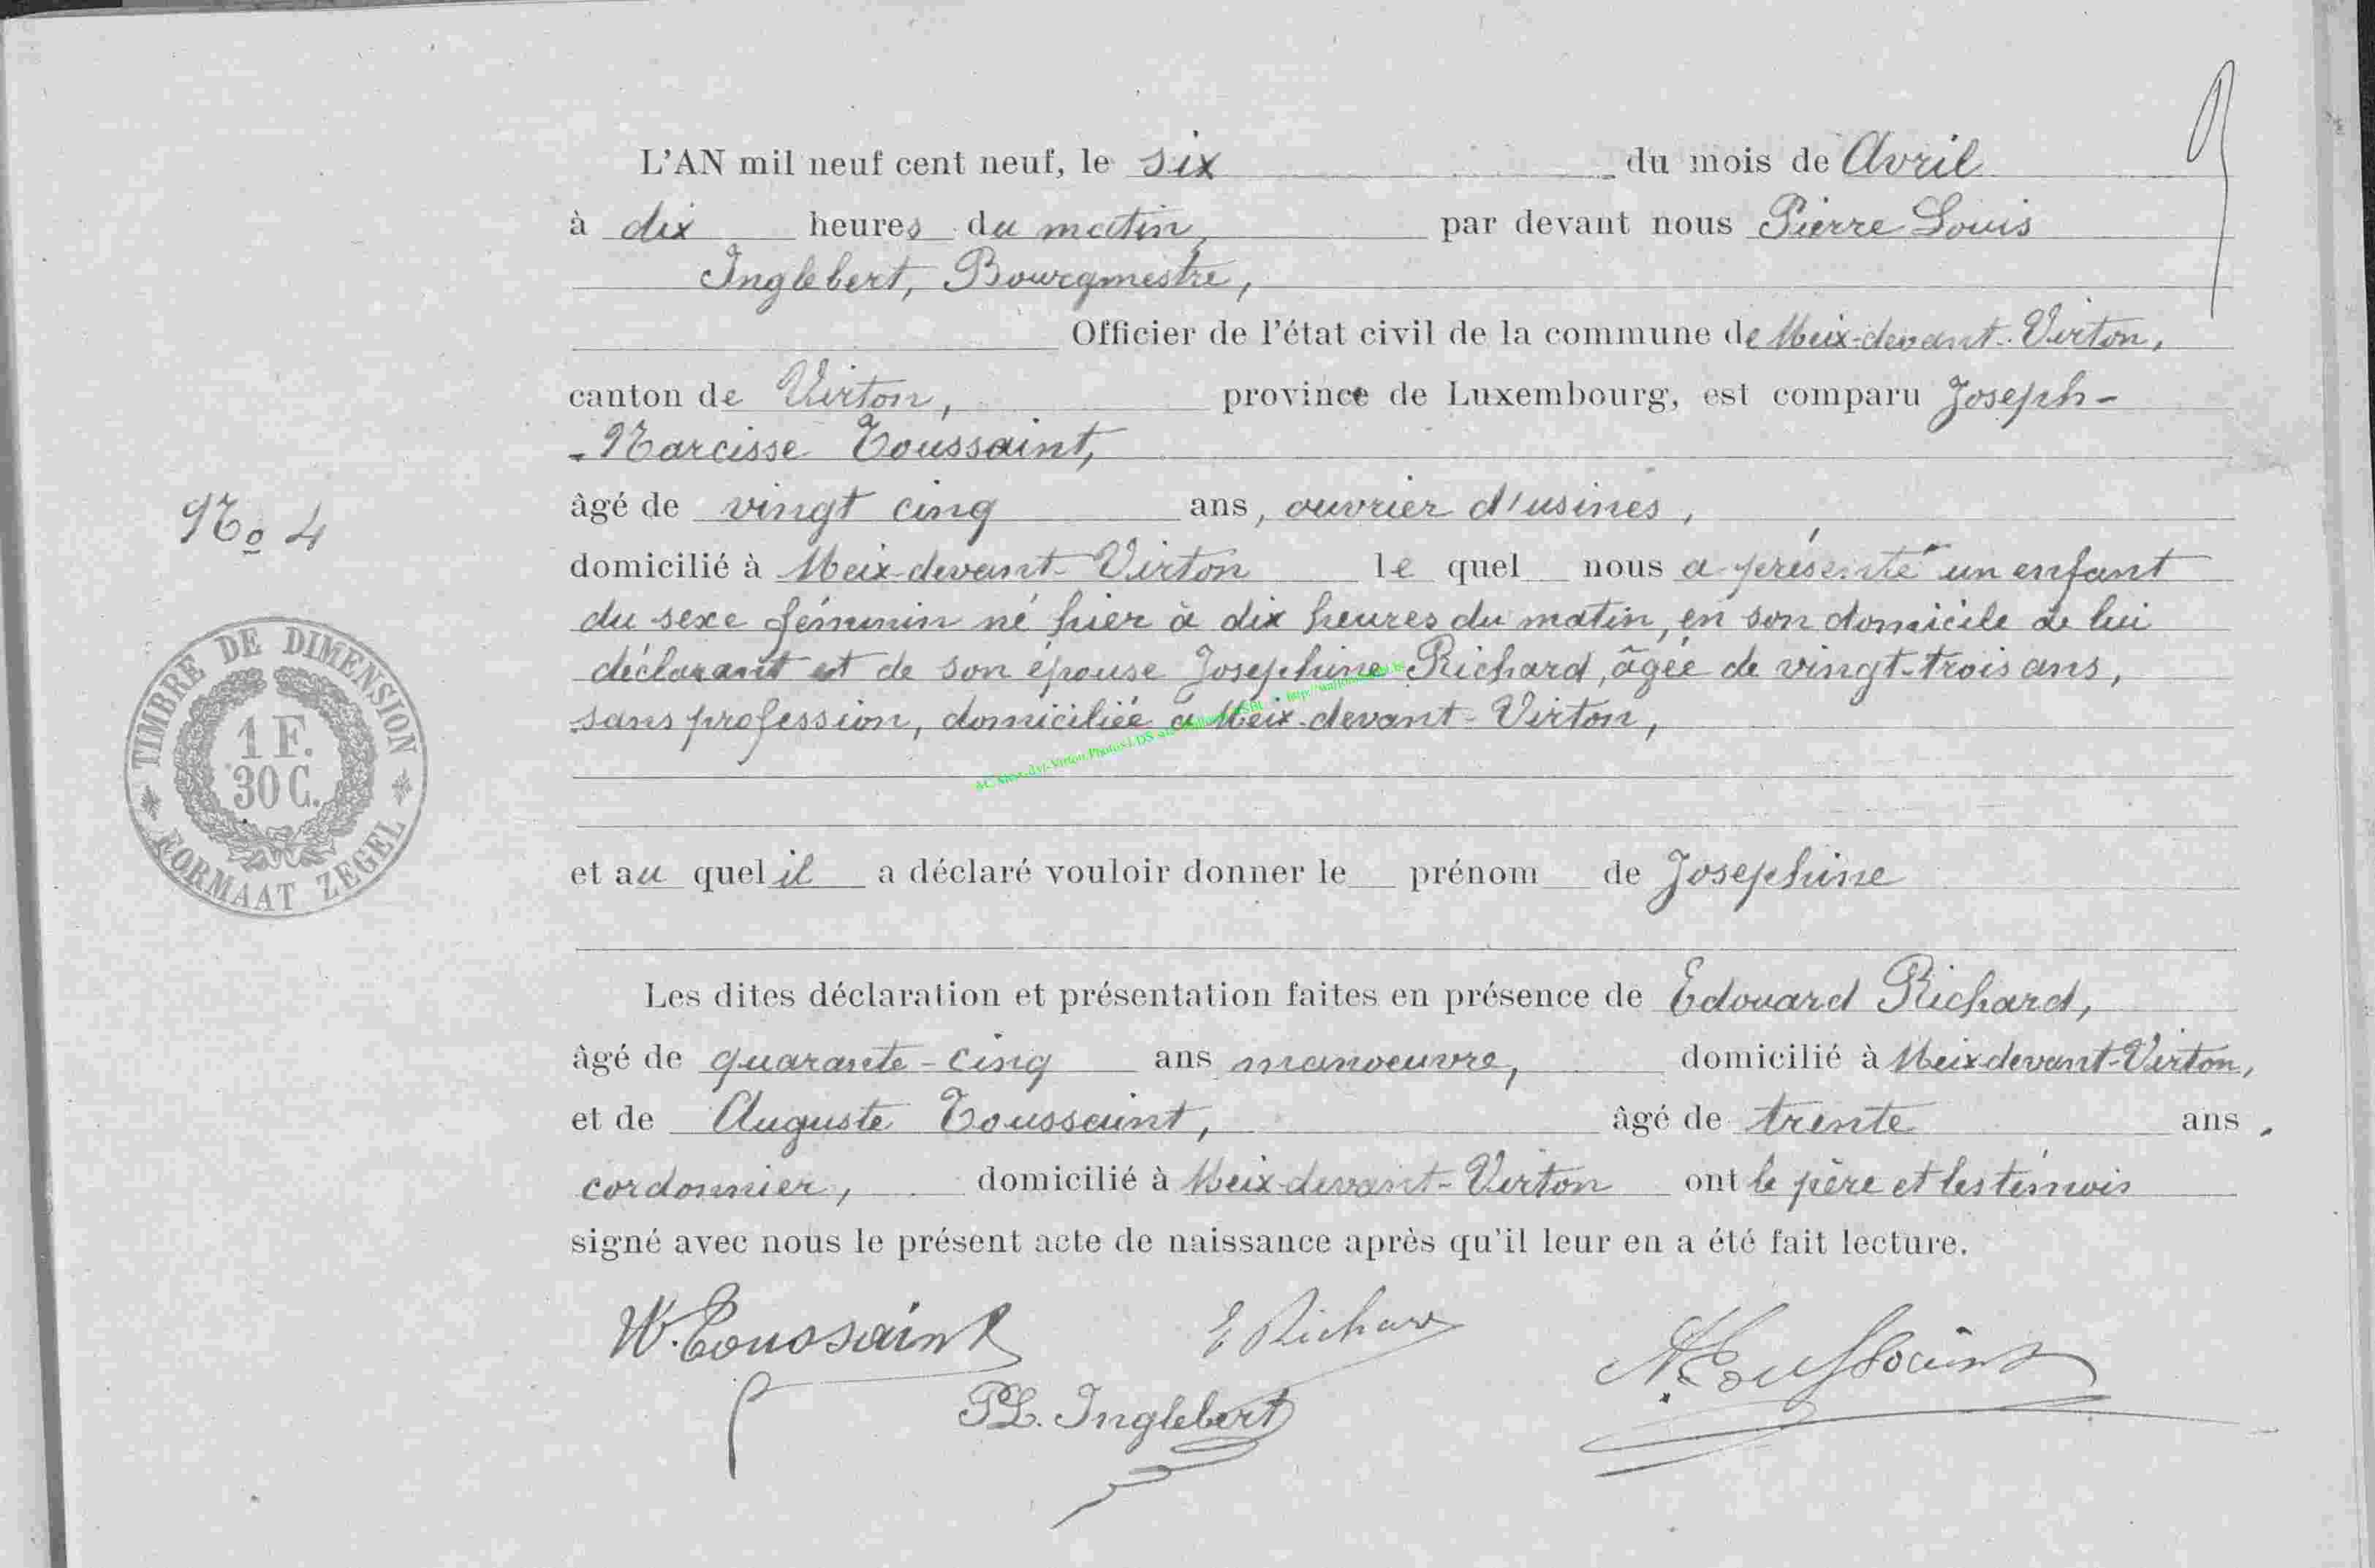 L'AN mil neuf cent neuf, le six du mois de Avril
à dix heures du matin, par devant nous Pierre Louis
Inglebert, Bourgmestre,
Officier de l'état civil de la commune de Meix-devant-Virton,
canton de Virton, province de Luxembourg, est comparu Joseph-
-Narcisse Toussaint,
âgé de vingt cinq ans, ouvrier d'usines,
No 4
domicilié à Meix-devant-Virton le quel nous a présenté un enfant
du sexe féminin né hier à dix heures du matin, en son domicile de lui
déclarant et de son épouse Josephine Richard, âgée de vingt-trois ans,
sans profession, domiciliée à Meix-devant-Virton,
TIMBRE DE DIMENSION
1 F.
30 C.
FORMAAT ZEGEL
et au quel il a déclaré vouloir donner le prénom de Josephine
Les dites déclaration et présentation faites en présence de Edouard Richard,
âgé de quarante-cinq ans manoeuvre, domicilié à Meix devant-Virton,
et de Auguste Toussaint, âgé de trente ans,
cordonnier, domicilié à Meix-devant-Virton ont le père et les témois
signé avec nous le présent acte de naissance après qu'il leur en a été fait lecture.
N. Toussaint E Richard A. Toussaint
PL. Inglebert